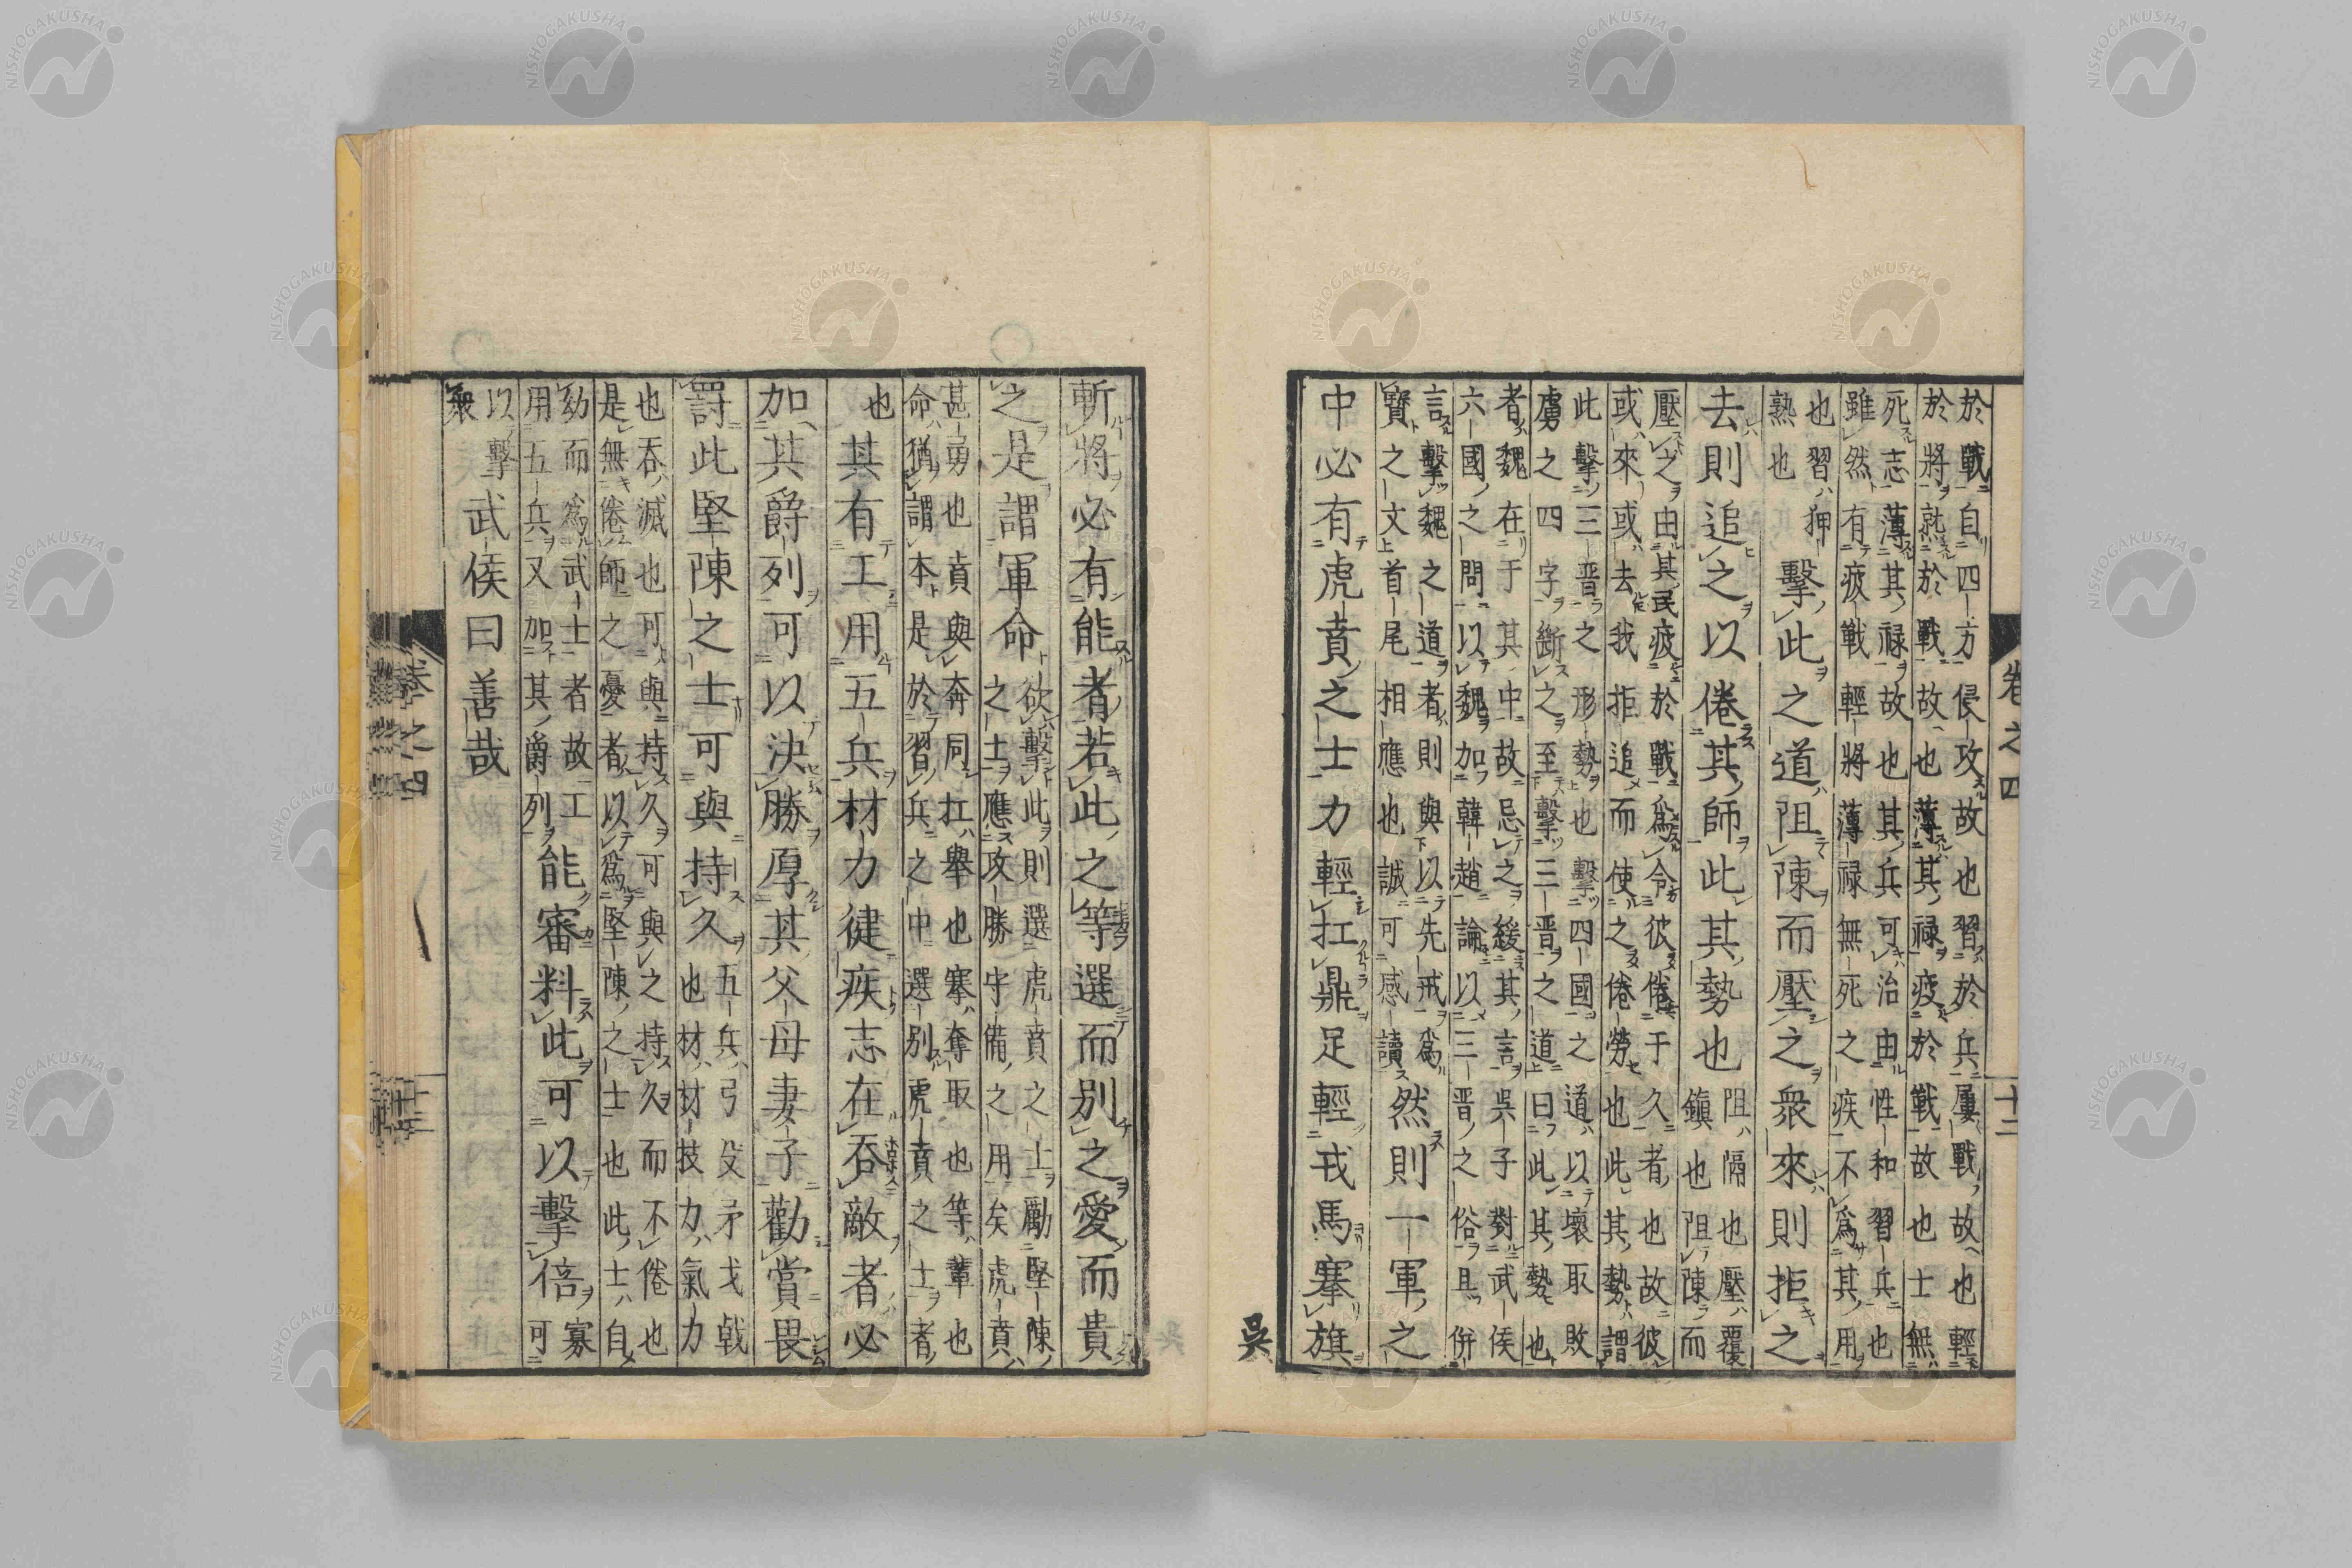 卷之四
十二
於戰自四方侵攻故也習於兵屢戰故也輕
於將熟於戰故也薄其祿疲於戰故也士無
死志薄其祿故也其兵可治由性和習兵也
雖然有疲戰輕將薄祿無死之疾不爲其用
也習狎
熟也
擊此之道阻陳而壓之衆來則拒之
去則追之以倦其師此其勢也
阻隔也壓覆
鎮也阻陳而
壓之由其民疲於戰爲令彼倦于久者也故彼
或來或去我拒追而使之倦勞也此其勢謂
此擊三晋之形勢也擊四國之道以壞取敗
虜之四字斷之至擊三晋之道曰此其勢也
者魏在于其中故忌之緩其言吳子對武侯
六國之問以魏加韓趙論以三晋之俗且併
言擊魏之道者則與以先戒爲
寶之文首尾相應也誠可感讀
然則一軍之
中必有虎賁之士力輕扛鼎足輕戎馬搴旗
吳
斬將必有能者若此之等選而別之愛而貴
之是謂軍命
欲擊此則選虎賁之士勵堅陳
之士應攻勝守備之用矣虎賁
甚勇也賁與奔同扛舉也搴奪取也等輩也
命猶謂本是於習兵之中選別虎賁之士者
也
其有工用五兵材力健疾志在吞敵者必
加其爵列可以決勝厚其父母妻子勸賞畏
罰此堅陳之士可與持久
五兵弓殳矛戈戟
也材材技力氣力
也吞滅也可與持久可與之持久而不倦也
是無倦師之憂者以爲堅陳之士也此士自
幼而爲武士者故工
用五兵又加其爵列
能審料此可以擊倍
寡可
以擊
衆
武侯曰善哉
卷之四